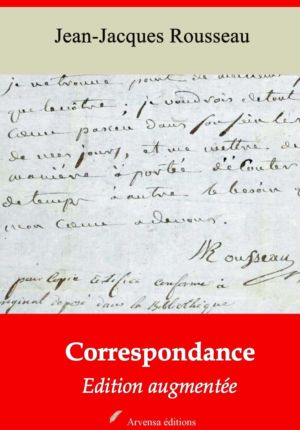 Jean-Jacques Rousseau
je ne trouve point de
que je voudrois de tout
cœur dans
de mes jours, et me mettre de
manière à portée d'écouter
de temps à autre le besoin
mon cœur a de vous.
Rousseau
pour Copie certifiée conforme à
original déposé dans la Bibliothèque
Correspondance
Edition augmentée
Arvensa éditions